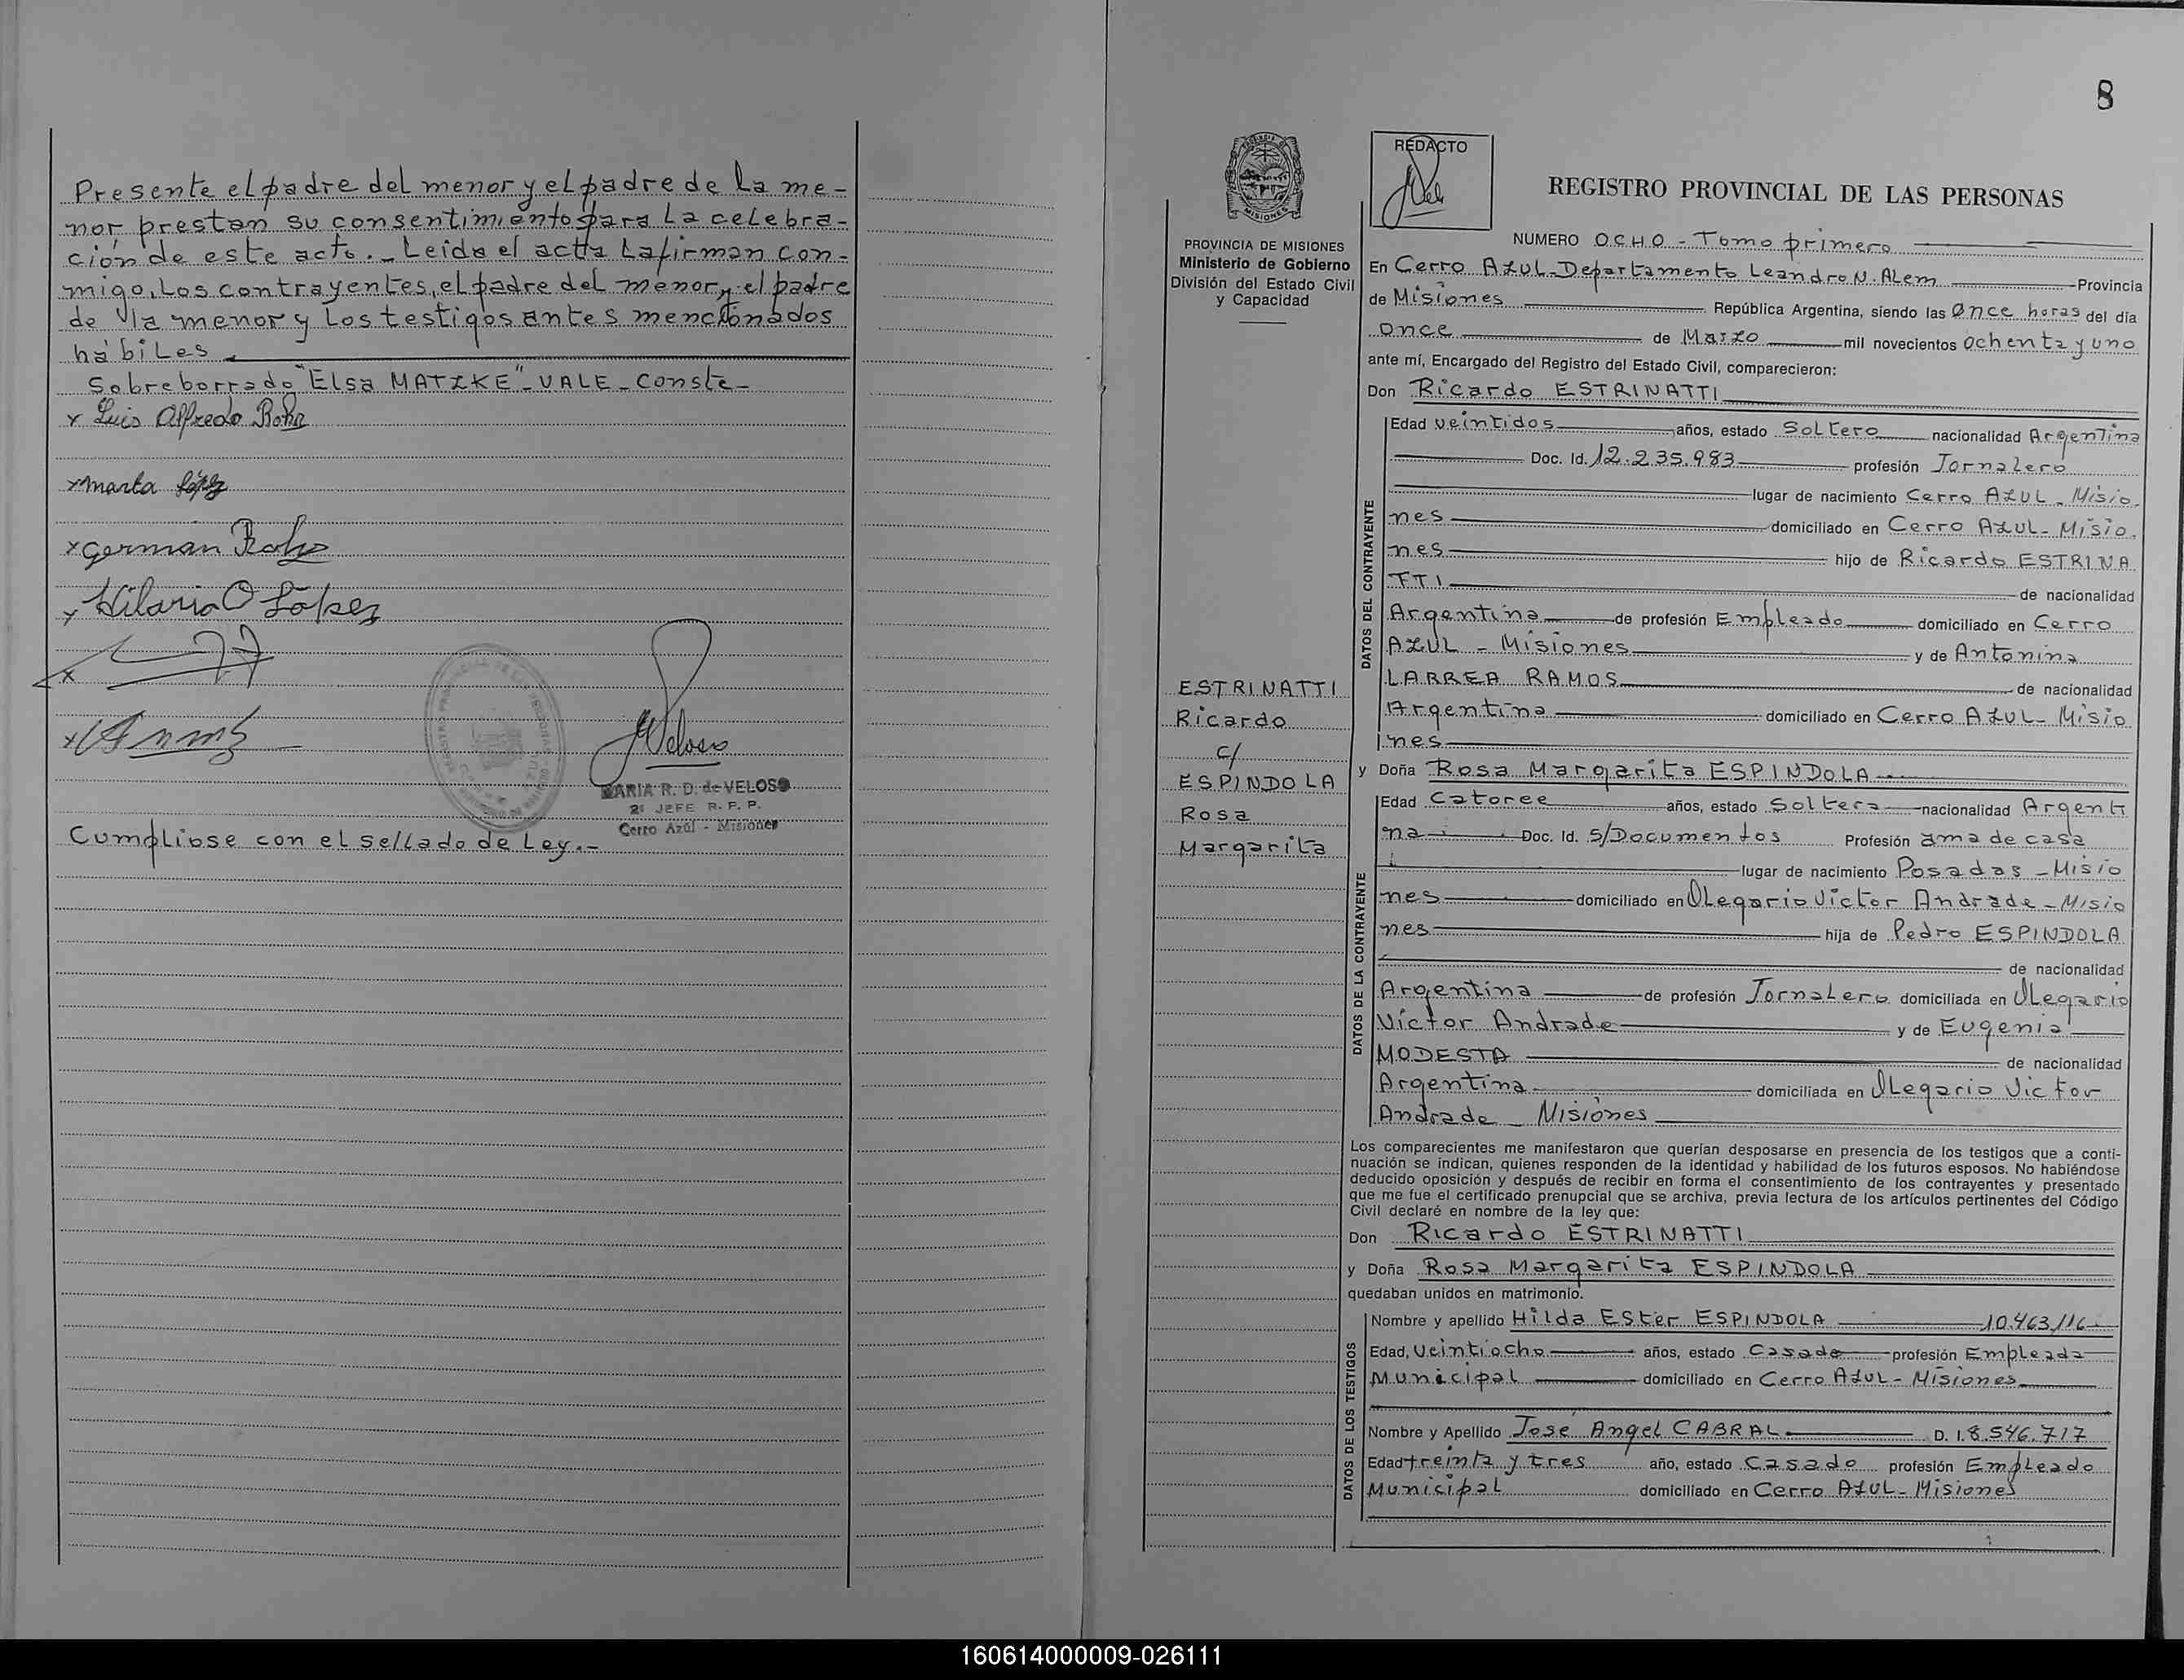 Presente el padre del menor y el padre de la me-
nor prestan su consentimiento para la celebra-
ción de este acto. - Leida el acta la firman con-
migo, los contrayentes, el padre del menor y el padre
de la menor y los testigos antes mencionados
hábiles
Sobreborrado "Elsa MATZKE" - VALE - Conste -
x Luis Alfredo Rohr
x Marta López
x German Rohr
x Hilario O López
x
x
Veloso
MARIA R. D. de VELOSO
JEFE R. P. P.
Cerro Azúl - Misiones
Cumpliose con el sellado de Ley.-
8
REDACTO
REGISTRO PROVINCIAL DE LAS PERSONAS
PROVINCIA DE MISIONES
Ministerio de Gobierno
División del Estado Civil
y Capacidad
NUMERO OCHO - Tomo primero
En Cerro AZUL - Departamento Leandro N. ALem Provincia
de Misiones República Argentina, siendo las Once horas del día
once de Marzo mil novecientos ochenta y uno
ante mí, Encargado del Registro del Estado Civil, comparecieron:
Don Ricardo ESTRINATTI
DATOS DEL CONTRAYENTE
Edad veintidos años, estado Soltero nacionalidad Argentina
Doc. Id. 12.235.983 profesión Jornalero
lugar de nacimiento Cerro AZUL - Misio
nes domiciliado en Cerro AZUL - Misio
nes hijo de Ricardo ESTRINA
TTI de nacionalidad
Argentina de profesión Empleado domiciliado en Cerro
AZUL - Misiones y de Antonina
LARREA RAMOS de nacionalidad
Argentina domiciliado en Cerro AZUL - Misio
nes
ESTRINATTI
Ricardo
c/
ESPINDOLA
Rosa
Margarita
y Doña Rosa Margarita ESPINDOLA
DATOS DE LA CONTRAYENTE
Edad Catorce años, estado Soltera nacionalidad Argenti
na Doc. Id. S/Documentos Profesión ama de casa
lugar de nacimiento Posadas - Misio
nes domiciliado en Olegario Victor Andrade - Misio
nes hija de Pedro ESPINDOLA
de nacionalidad
Argentina de profesión Jornalero domiciliada en Olegario
Victor Andrade y de Eugenia
MODESTA de nacionalidad
Argentina domiciliada en Olegario Victor
Andrade - Misiones
Los comparecientes me manifestaron que querían desposarse en presencia de los testigos que a conti-
nuación se indican, quienes responden de la identidad y habilidad de los futuros esposos. No habiéndose
deducido oposición y después de recibir en forma el consentimiento de los contrayentes y presentado
que me fue el certificado prenupcial que se archiva, previa lectura de los artículos pertinentes del Código
Civil declaré en nombre de la ley que:
Don Ricardo ESTRINATTI
y Doña Rosa Margarita ESPINDOLA
quedaban unidos en matrimonio.
DATOS DE LOS TESTIGOS
Nombre y apellido Hilda Ester ESPINDOLA 10.463.116
Edad, veintiocho años, estado Casada profesión Empleada
Municipal domiciliado en Cerro AZUL - Misiones
Nombre y Apellido José Angel CABRAL D. I. 8.546.717
Edad treinta y tres año, estado Casado profesión Empleado
Municipal domiciliado en Cerro AZUL - Misiones
160614000009-026111